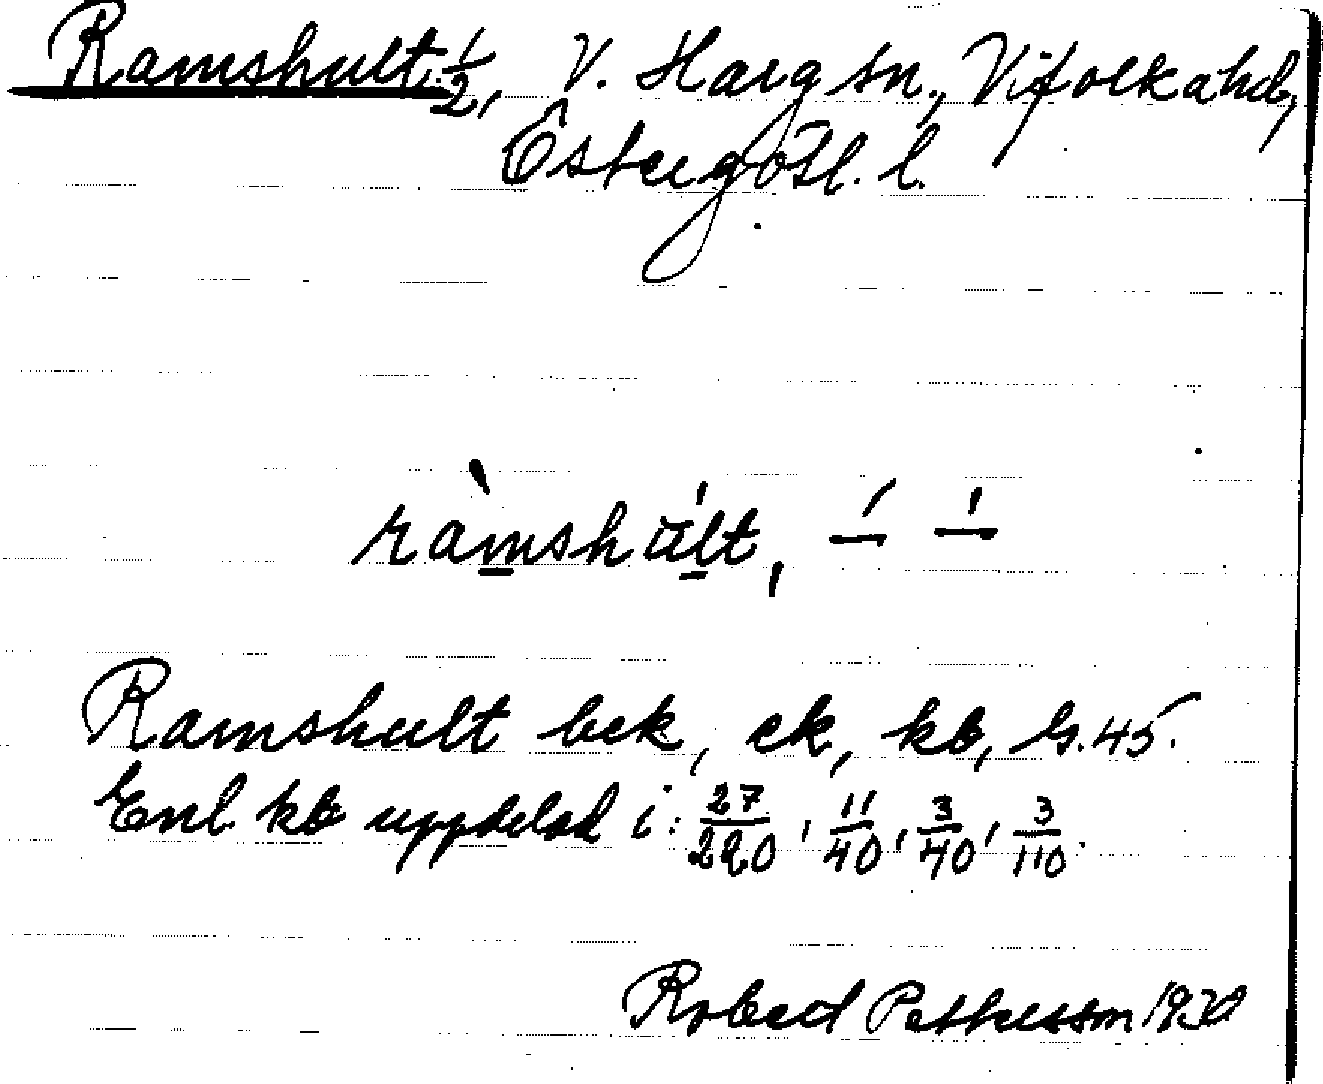 Ramshult ½, V. Harg sn., Vifolkahd,
Östergötl. l.
ràmshúlt, – –
Ramshult bek, ek, kb, G. 45.
Enl. kb uppdelad i: 27/220, 11/40, 3/40, 3/110.
Robert Pettersson 1930